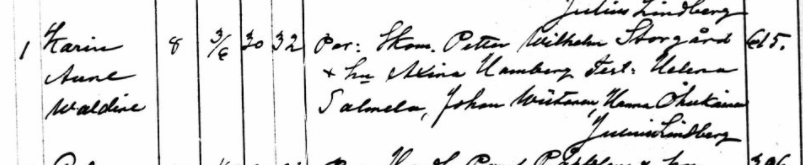 Julius Lindberg
1 Karin 8 3/6 30 32 Par: Skom. Petter Wilhelm Storgård 615.
Aune + hu Axina Hamberg Test: Helena
Waldine Salmela, Johan Wiitanen, Hanna
Julius Lindberg